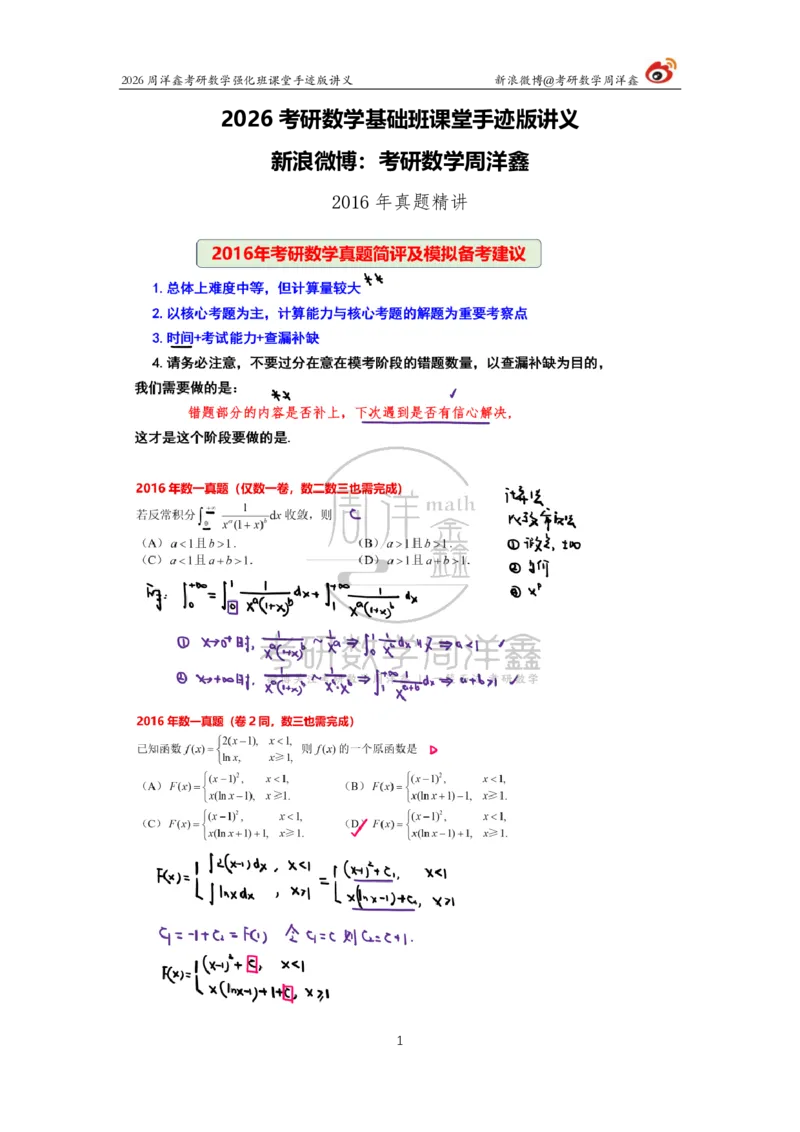 2026 周洋鑫考研数学强化班课堂手迹版讲义 新浪微博@考研数学周洋鑫
2026 考研数学基础班课堂手迹版讲义
新浪微博：考研数学周洋鑫
2016 年真题精讲
2016年考研数学真题简评及模拟备考建议
1.总体上难度中等，但计算量较大 **
2.以核心考题为主，计算能力与核心考题的解题为重要考察点
3.时间+考试能力+查漏补缺
4.请务必注意，不要过分在意在模考阶段的错题数量，以查漏补缺为目的，
我们需要做的是：
** ✓
错题部分的内容是否补上，下次遇到是否有信心解决，
这才是这个阶段要做的是.
2016 年数一真题（仅数一卷，数二数三也需完成）
若反常积分∫₀^{+∞} 1/(x^a(1+x)^b) dx 收敛，则 C
（A）a<1且b>1. （B）a>1且b>1.
（C）a<1且a+b>1. （D）a>1且a+b>1.
计算法
① 设定, ±∞
② 等价
③ x^p
∫₀^{+∞} = ∫₀^1 1/(x^a(1+x)^b) dx + ∫₁^{+∞} 1/(x^a(1+x)^b) dx
① x→0⁺时, 1/(x^a(1+x)^b) ~ 1/x^a ⇒ ∫₀^1 1/x^a dx 收 ⇒ a<1 ✓
② x→+∞时, 1/(x^a(1+x)^b) ~ 1/(x^a·x^b) ⇒ ∫₁^{+∞} 1/x^{a+b} dx ⇒ a+b>1 ✓
周洋鑫 math
考研数学周洋鑫
2016 年数一真题（卷 2 同，数三也需完成）
已知函数 f(x)={2(x−1), x<1, ln x, x≥1, 则 f(x) 的一个原函数是 D
（A）F(x)={(x−1)², x<1, x(ln x−1), x≥1. （B）F(x)={(x−1)², x<1, x(ln x+1)−1, x≥1.
（C）F(x)={(x−1)², x<1, x(ln x+1)+1, x≥1. （D）F(x)={(x−1)², x<1, x(ln x−1)+1, x≥1.
F(x)={∫2(x-1)dx, x<1 ∫lnxdx, x≥1 = {(x-1)²+C₁, x<1 x(lnx-1)+C₂, x≥1
C₁=-1+C₂=F(1) 令C₁=C 则C₂=C+1.
F(x)={(x-1)²+C, x<1
x(lnx-1)+1+C, x≥1
1